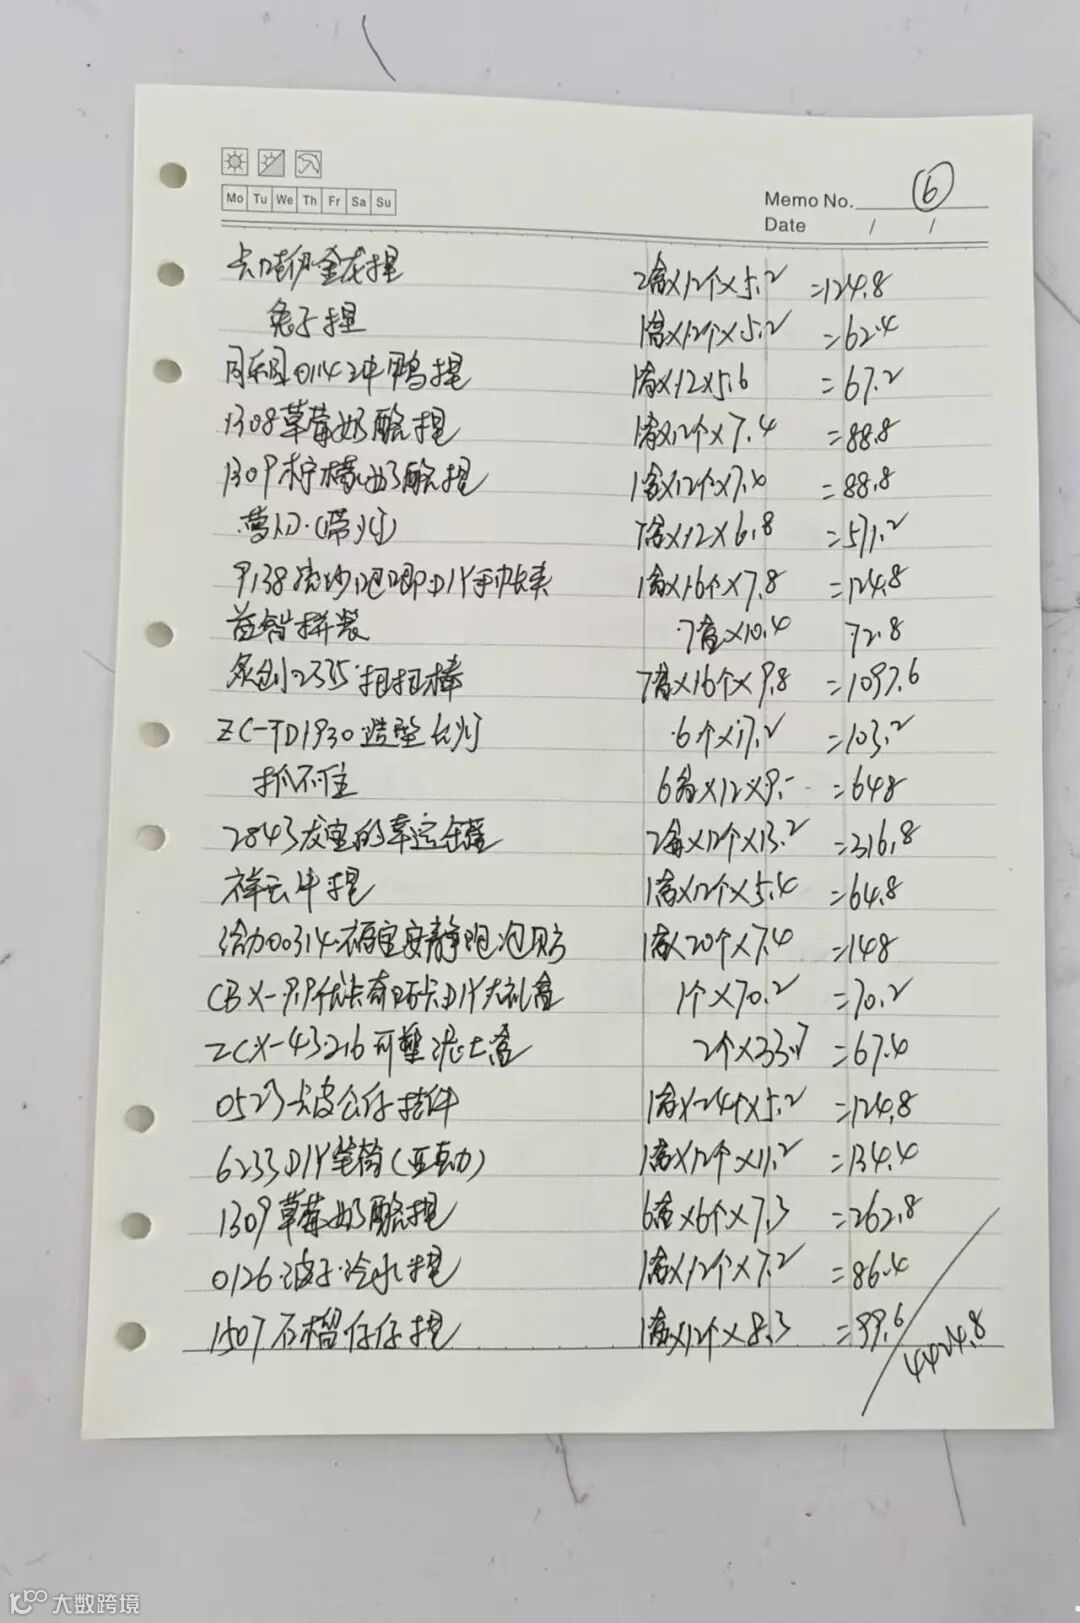 Mo Tu We Th Fr Sa Su
Memo No. ⑥
Date / /
金龙捏 2盒×12个×5.2 =124.8
兔子捏 1盒×12个×5.2 =62.4
0114冲鸭捏 1盒×12×5.6 =67.2
1308草莓奶酪捏 1盒×12个×7.4 =88.8
1309柠檬奶酪捏 1盒×12个×7.4 =88.8
萝卜刀(带灯) 7盒×12×6.8 =571.2
9138流沙DIY手帐夹 1盒×16个×7.8 =124.8
益智拼装 7盒×10.4 72.8
炙创2335扭扭棒 7盒×16个×9.8 =1097.6
ZC-TD1930造型台灯 6个×17.2 =103.2
抓不住 6盒×12×9.- =648
2843发宝的幸运罐 2盒×12个×13.2 =316.8
祥云牛捏 1盒×12个×5.4 =64.8
给力00314福宝安静泡泡贴 1盒×20个×7.4 =148
CBX-P.P优卡奇咔卡DIY大礼盒 1个×70.2 =70.2
ZCX-43216可塑泥土盒 2个×33.7 =67.4
0523卡皮公仔挂件 1盒×24个×5.2 =124.8
6233DIY笔筒(亚克力) 1盒×12个×11.2 =134.4
1309草莓奶酪捏 6盒×6个×7.3 =262.8
0126冷水捏 1盒×12个×7.2 =86.4
1507石榴仔仔捏 1盒×12个×8.3 =99.6
4424.8
大数跨境